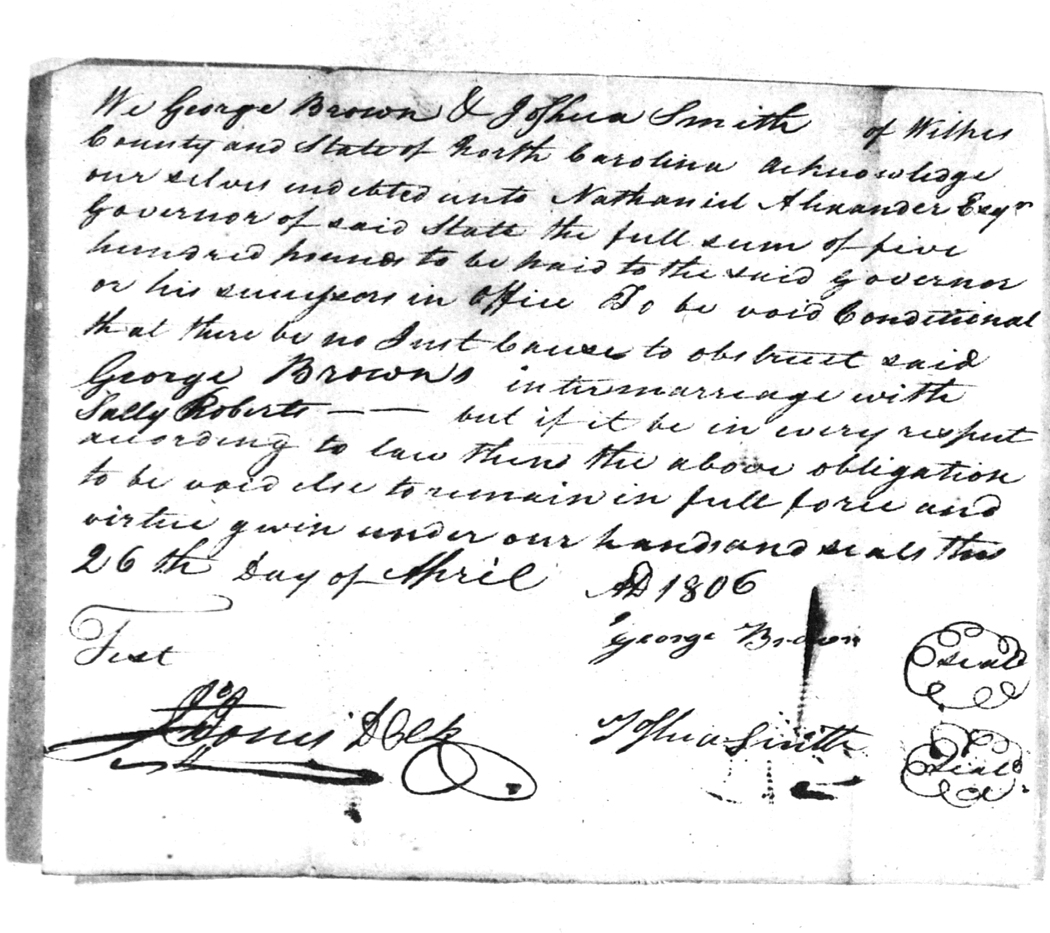 We George Brown & Joshua Smith of Wilkes
County and State of North Carolina acknowledge
our selves indebted unto Nathaniel Alexander Esqr
Governor of said State the full sum of five
hundred pounds to be paid to the said Governor
or his sucessors in office To be void Conditional
that there be no Just Cause to obstruct said
George Browns intermarriage with
Sally Roberts — — but if it be in every respect
according to law then the above obligation
to be void else to remain in full force and
virtue givin under our hands and seals this
26th Day of April AD 1806
George Brown seal
Test
Joshua Smith seal